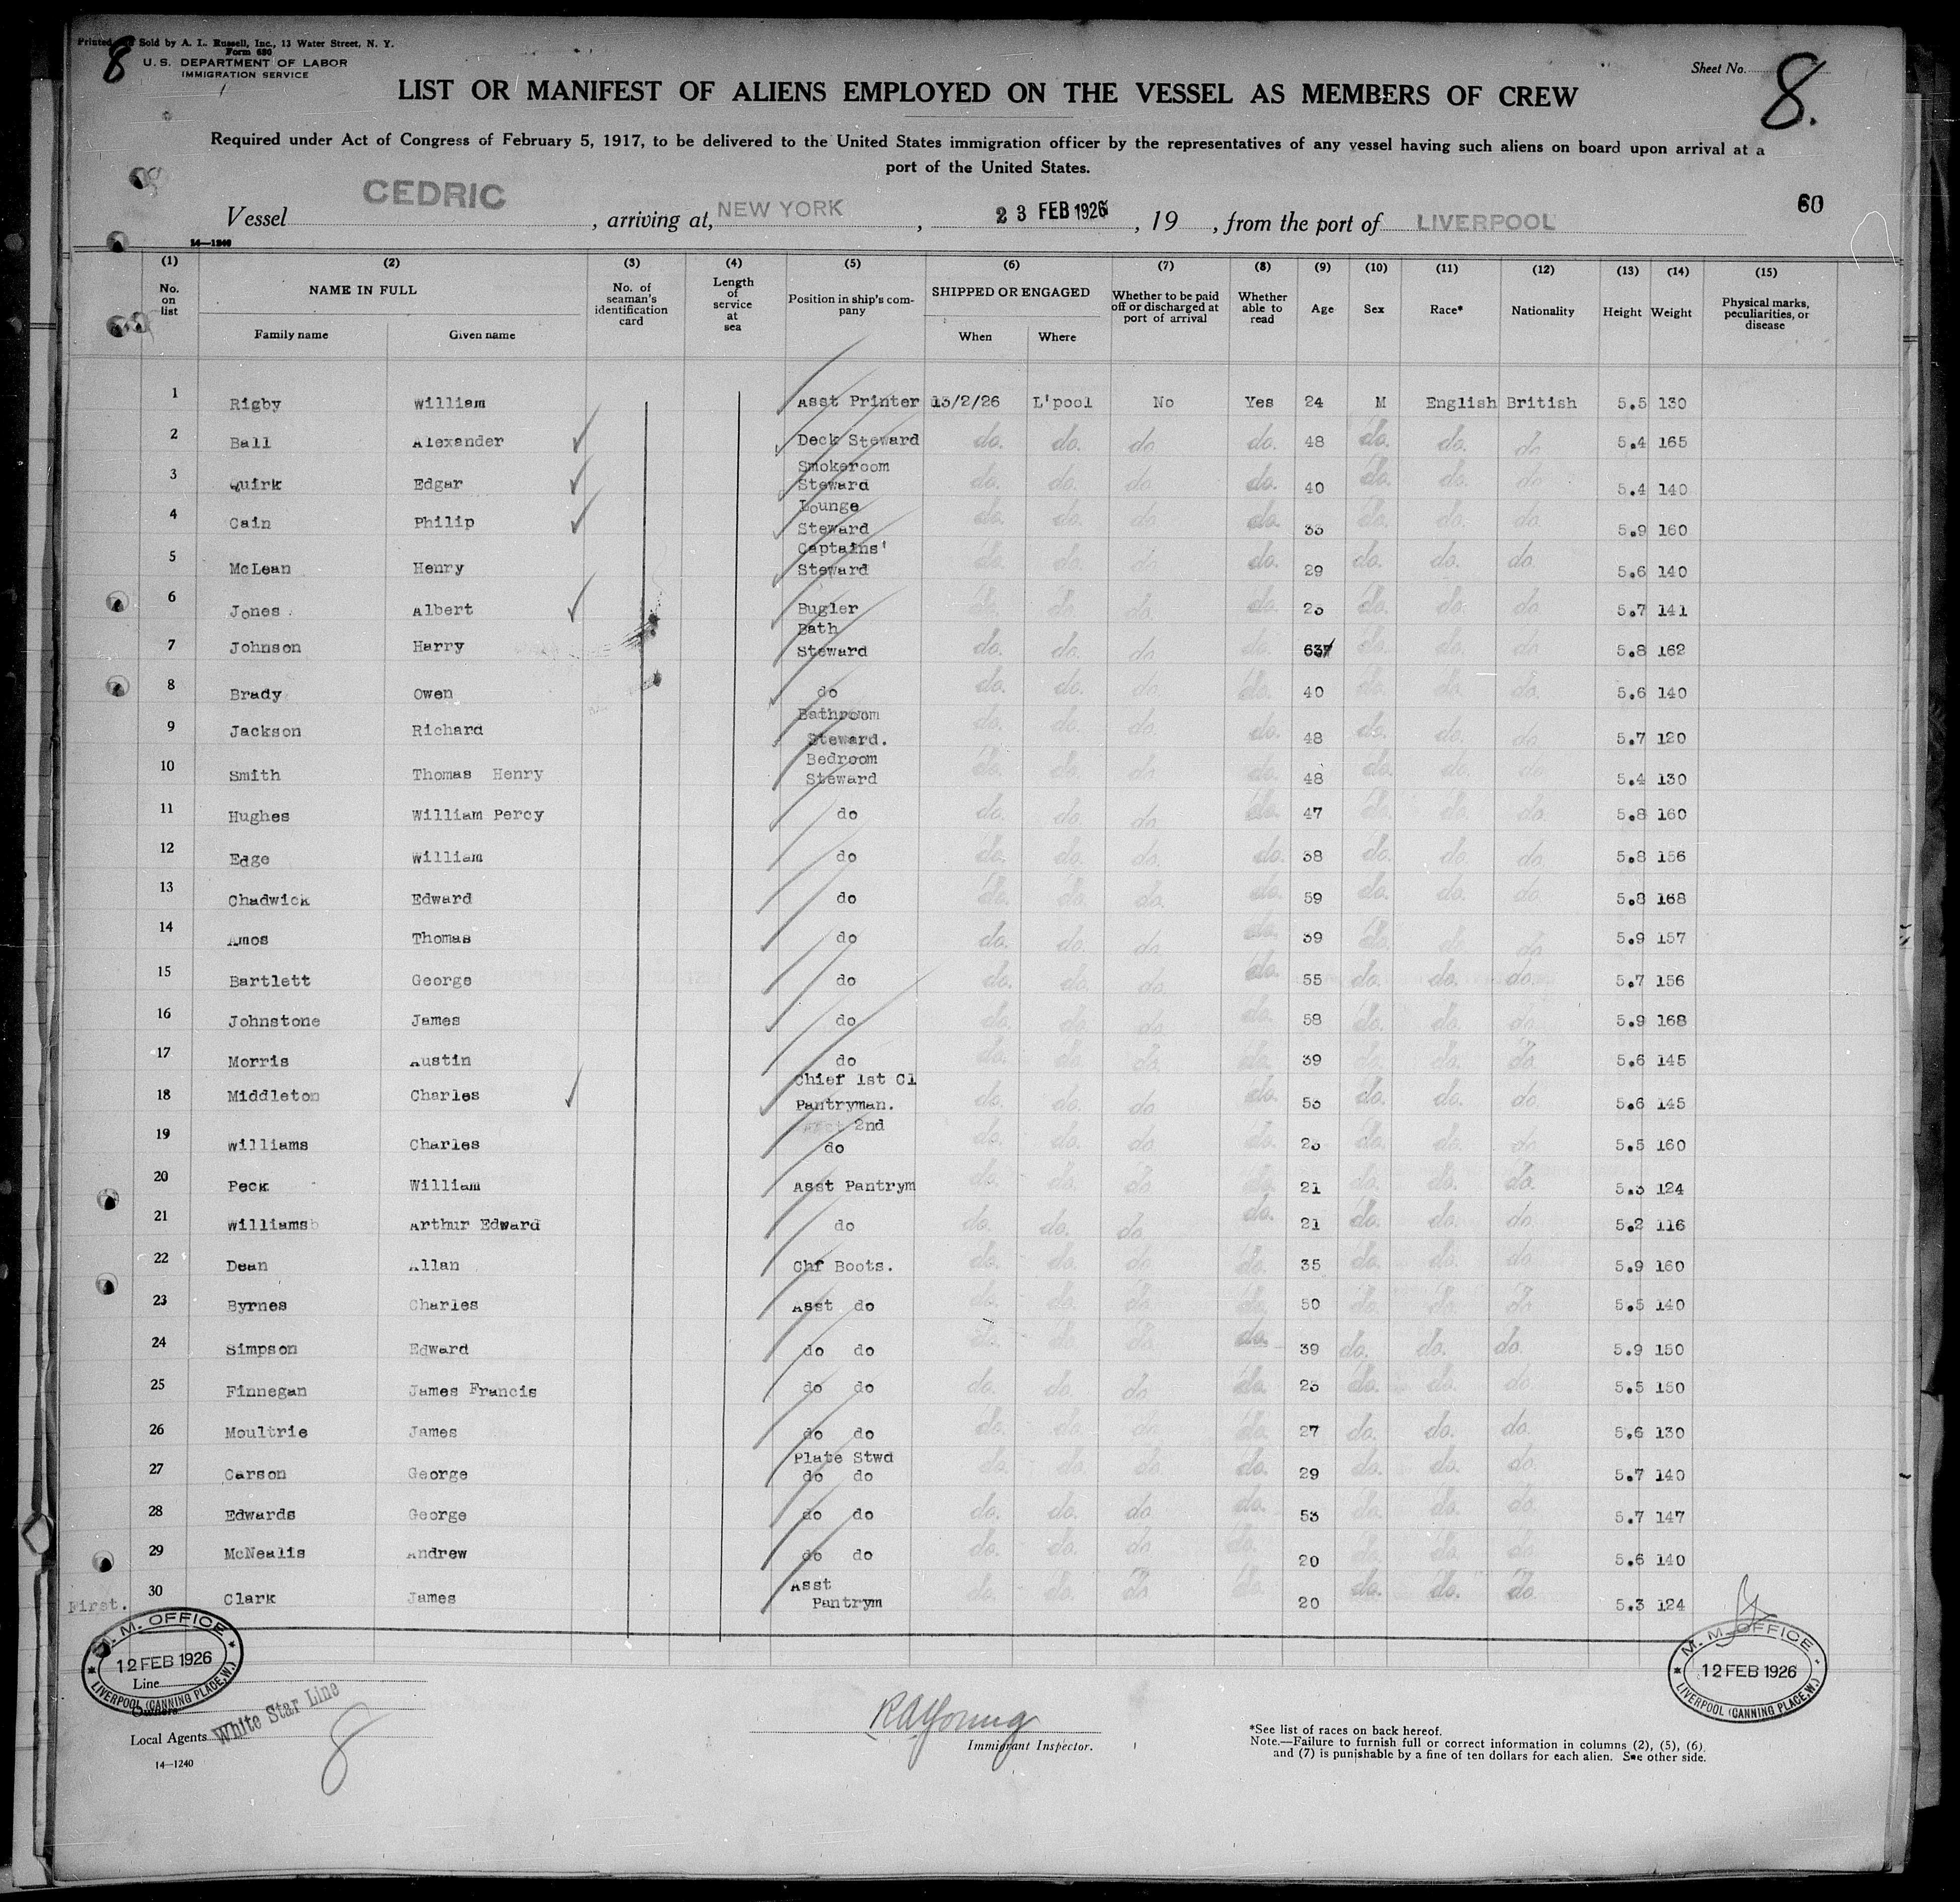 Printed Sold by A. L. Russell, Inc., 13 Water Street, N. Y.
Form 680
8
U. S. DEPARTMENT OF LABOR
IMMIGRATION SERVICE
Sheet No. 8.
LIST OR MANIFEST OF ALIENS EMPLOYED ON THE VESSEL AS MEMBERS OF CREW
Required under Act of Congress of February 5, 1917, to be delivered to the United States immigration officer by the representatives of any vessel having such aliens on board upon arrival at a
port of the United States.
60
Vessel CEDRIC, arriving at, NEW YORK, 23 FEB 1926, 19 , from the port of LIVERPOOL
14—1240
(1) (2) (3) (4) (5) (6) (7) (8) (9) (10) (11) (12) (13) (14) (15)
No. on list NAME IN FULL Family name Given name No. of seaman's identification card Length of service at sea Position in ship's company SHIPPED OR ENGAGED When Where Whether to be paid off or discharged at port of arrival Whether able to read Age Sex Race* Nationality Height Weight Physical marks, peculiarities, or disease
1 Rigby William Asst Printer 13/2/26 L'pool No Yes 24 M English British 5.5 130
2 Ball Alexander Deck Steward do. do. do do. 48 do. do. do 5.4 165
3 Quirk Edgar Smokeroom Steward do. do. do do. 40 do. do. do 5.4 140
4 Cain Philip Lounge Steward do. do. do do. 33 do. do. do 5.9 160
5 McLean Henry Captains' Steward do. do. do do. 29 do. do. do. 5.6 140
6 Jones Albert Bugler do. do. do. do. 23 do. do. do 5.7 141
7 Johnson Harry Bath Steward do. do. do do. 63 do. do. do 5.8 162
8 Brady Owen do do. do. do do. 40 do. do. do. 5.6 140
9 Jackson Richard Bathroom Steward. do. do. do do. 48 do. do. do 5.7 120
10 Smith Thomas Henry Bedroom Steward do. do. do do. 48 do. do. do 5.4 130
11 Hughes William Percy do do. do. do do. 47 do. do. do. 5.8 160
12 Edge William do do. do. do. do. 38 do. do. do. 5.8 156
13 Chadwick Edward do do. do. do. do. 59 do. do. do 5.8 168
14 Amos Thomas do do. do. do do. 39 do. do. do 5.9 157
15 Bartlett George do do. do. do do. 55 do. do. do. 5.7 156
16 Johnstone James do do. do. do do. 58 do. do. do 5.9 168
17 Morris Austin do do. do. do. do. 39 do. do. do. 5.6 145
18 Middleton Charles Chief 1st Cl Pantryman. do. do. do do. 53 do. do. do 5.6 145
19 Williams Charles 2nd do do. do. do do. 23 do. do. do 5.5 160
20 Peck William Asst Pantrym do. do. do do. 21 do. do. do. 5.3 124
21 Williams Arthur Edward do do. do. do do. 21 do. do. do 5.2 116
22 Dean Allan Chf Boots. do. do. do do. 35 do. do. do 5.9 160
23 Byrnes Charles Asst do do. do. do do. 50 do. do. do 5.5 140
24 Simpson Edward do do do. do. do do. 39 do. do. do. 5.9 150
25 Finnegan James Francis do do do. do. do do. 23 do. do. do 5.5 150
26 Moultrie James do do do. do. do do. 27 do. do. do. 5.6 130
27 Carson George Plate Stwd do do do. do. do do. 29 do. do. do 5.7 140
28 Edwards George do do do. do. do do. 53 do. do. do. 5.7 147
29 McNealis Andrew do do do. do. do do. 20 do. do. do 5.6 140
30 Clark James Asst Pantrym do. do. do do. 20 do. do. do. 5.3 124
First.
M. M. OFFICE
12 FEB 1926
LIVERPOOL (CANNING PLACE, W.)
M. M. OFFICE
12 FEB 1926
LIVERPOOL (CANNING PLACE, W.)
Line
Owners
Local Agents White Star Line
8
14—1240
RAYoung
Immigrant Inspector.
*See list of races on back hereof.
Note.—Failure to furnish full or correct information in columns (2), (5), (6)
and (7) is punishable by a fine of ten dollars for each alien. See other side.